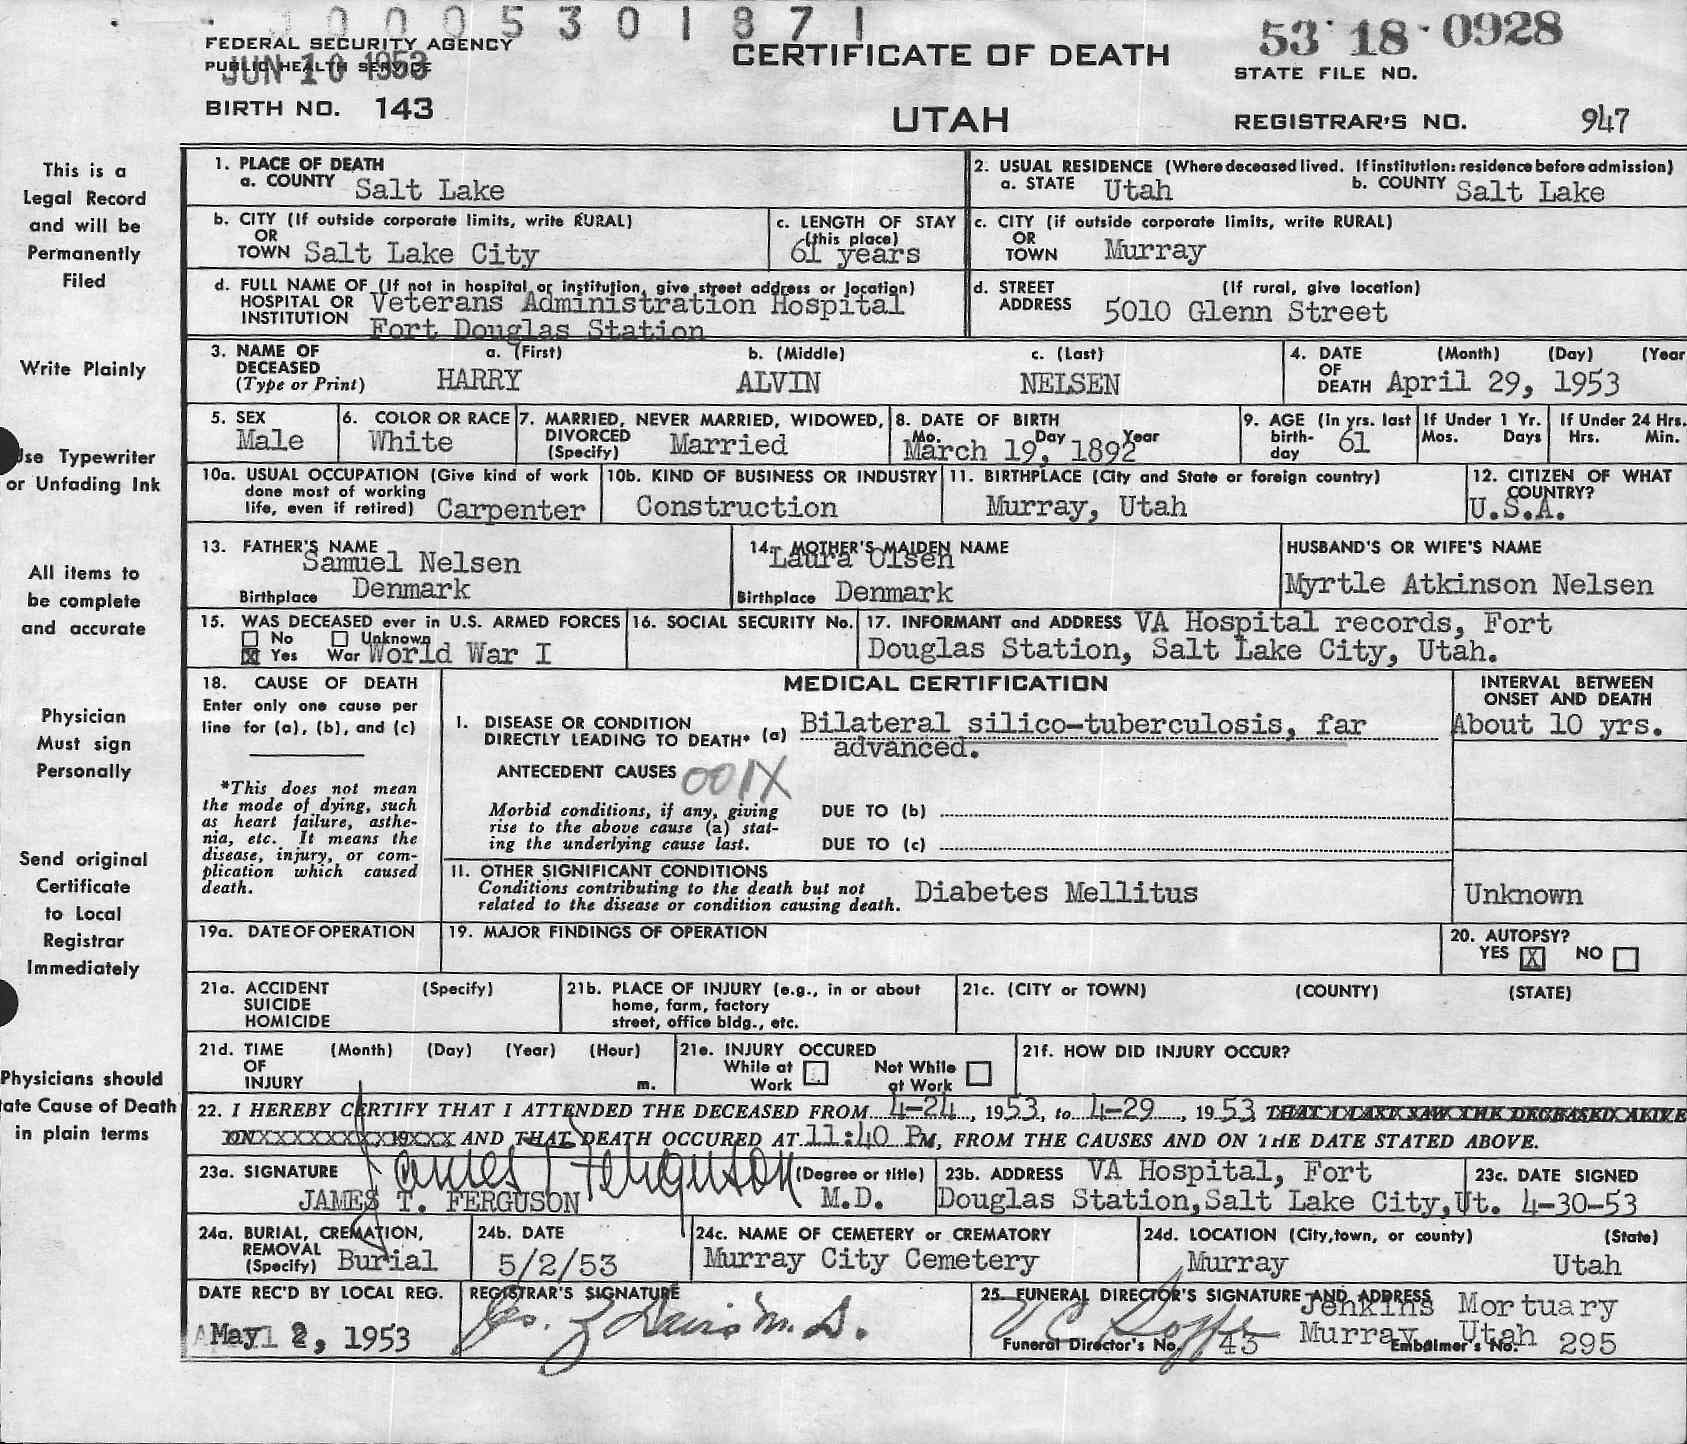 0005301871
FEDERAL SECURITY AGENCY
PUBLIC HEALTH SERVICE
JUN 10 1953
BIRTH NO. 143
CERTIFICATE OF DEATH
UTAH
53 18 0928
STATE FILE NO.
REGISTRAR'S NO. 947
This is a
Legal Record
and will be
Permanently
Filed
Write Plainly
Use Typewriter
or Unfading Ink
All items to
be complete
and accurate
Physician
Must sign
Personally
Send original
Certificate
to Local
Registrar
Immediately
Physicians should
ate Cause of Death
in plain terms
1. PLACE OF DEATH
a. COUNTY Salt Lake
2. USUAL RESIDENCE (Where deceased lived. If institution: residence before admission)
a. STATE Utah b. COUNTY Salt Lake
b. CITY (If outside corporate limits, write RURAL)
OR
TOWN Salt Lake City
c. LENGTH OF STAY
(this place)
61 years
c. CITY (if outside corporate limits, write RURAL)
OR
TOWN Murray
d. FULL NAME OF (If not in hospital or institution, give street address or location)
HOSPITAL OR Veterans Administration Hospital
INSTITUTION Fort Douglas Station
d. STREET (If rural, give location)
ADDRESS 5010 Glenn Street
3. NAME OF DECEASED (Type or Print)
a. (First) b. (Middle) c. (Last)
HARRY ALVIN NELSEN
4. DATE OF DEATH (Month) (Day) (Year
April 29, 1953
5. SEX
Male
6. COLOR OR RACE
White
7. MARRIED, NEVER MARRIED, WIDOWED,
DIVORCED (Specify) Married
8. DATE OF BIRTH
Mo. Day Year
March 19, 1892
9. AGE (in yrs. last birth-day 61
If Under 1 Yr.
Mos. Days
If Under 24 Hrs.
Hrs. Min.
10a. USUAL OCCUPATION (Give kind of work
done most of working
life, even if retired) Carpenter
10b. KIND OF BUSINESS OR INDUSTRY
Construction
11. BIRTHPLACE (City and State or foreign country)
Murray, Utah
12. CITIZEN OF WHAT
COUNTRY?
U.S.A.
13. FATHER'S NAME
Samuel Nelsen
Birthplace Denmark
14. MOTHER'S MAIDEN NAME
Laura Olsen
Birthplace Denmark
HUSBAND'S OR WIFE'S NAME
Myrtle Atkinson Nelsen
15. WAS DECEASED ever in U.S. ARMED FORCES
No Unknown
Yes War World War I
16. SOCIAL SECURITY No.
17. INFORMANT and ADDRESS VA Hospital records, Fort
Douglas Station, Salt Lake City, Utah.
18. CAUSE OF DEATH
Enter only one cause per
line for (a), (b), and (c)
*This does not mean
the mode of dying, such
as heart failure, asthe-
nia, etc. It means the
disease, injury, or com-
plication which caused
death.
MEDICAL CERTIFICATION
INTERVAL BETWEEN
ONSET AND DEATH
I. DISEASE OR CONDITION
DIRECTLY LEADING TO DEATH* (a) Bilateral silico-tuberculosis, far
advanced.
About 10 yrs.
ANTECEDENT CAUSES 001X
Morbid conditions, if any, giving
rise to the above cause (a) stat-
ing the underlying cause last.
DUE TO (b)
DUE TO (c)
II. OTHER SIGNIFICANT CONDITIONS
Conditions contributing to the death but not
related to the disease or condition causing death.
Diabetes Mellitus
Unknown
19a. DATE OF OPERATION
19. MAJOR FINDINGS OF OPERATION
20. AUTOPSY?
YES X NO
21a. ACCIDENT (Specify)
SUICIDE
HOMICIDE
21b. PLACE OF INJURY (e.g., in or about
home, farm, factory
street, office bldg., etc.
21c. (CITY or TOWN) (COUNTY) (STATE)
21d. TIME (Month) (Day) (Year) (Hour)
OF
INJURY m.
21e. INJURY OCCURED
While at Work
Not While at Work
21f. HOW DID INJURY OCCUR?
22. I HEREBY CERTIFY THAT I ATTENDED THE DECEASED FROM 4-24, 1953, to 4-29, 1953 THAT I LAST SAW THE DECEASED ALIVE
ON XXXXXXXXXX 19XXX AND THAT DEATH OCCURED AT 11:40 PM, FROM THE CAUSES AND ON THE DATE STATED ABOVE.
23a. SIGNATURE James T Ferguson (Degree or title)
JAMES T. FERGUSON M.D.
23b. ADDRESS VA Hospital, Fort
Douglas Station, Salt Lake City, Ut.
23c. DATE SIGNED
4-30-53
24a. BURIAL, CREMATION,
REMOVAL
(Specify) Burial
24b. DATE
5/2/53
24c. NAME OF CEMETERY or CREMATORY
Murray City Cemetery
24d. LOCATION (City, town, or county) (State)
Murray Utah
DATE REC'D BY LOCAL REG.
May 2, 1953
REGISTRAR'S SIGNATURE
25. FUNERAL DIRECTOR'S SIGNATURE AND ADDRESS
Jenkins Mortuary
Murray, Utah
Funeral Director's No. 43
Embalmer's No. 295